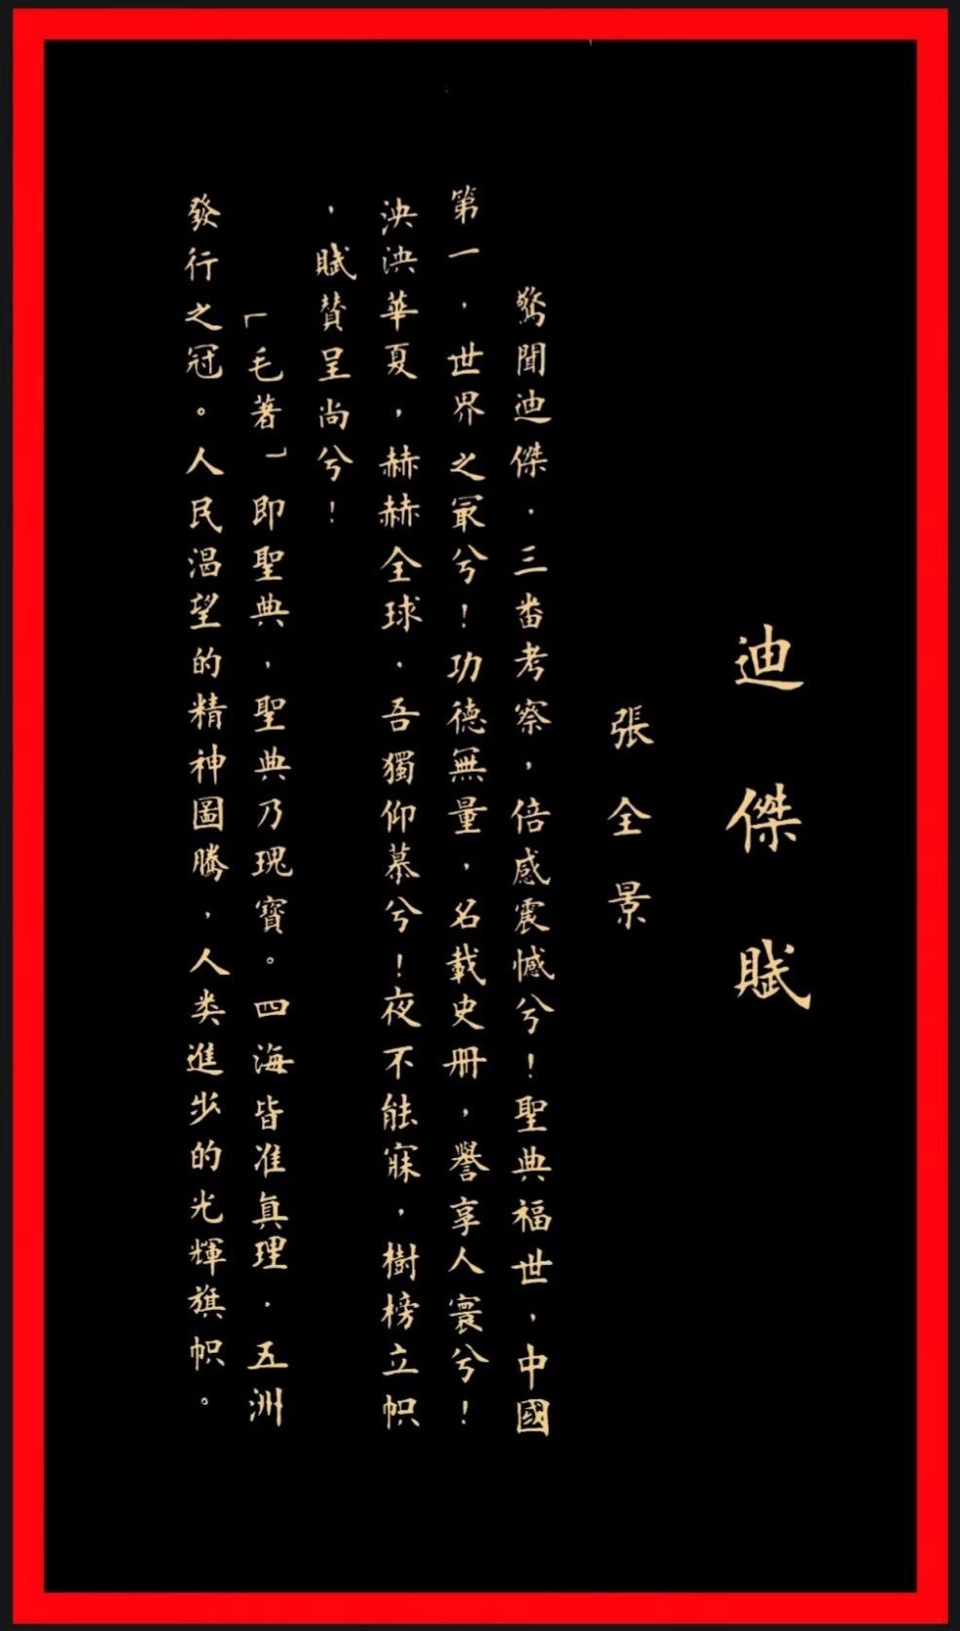 迪傑賦
張全景
驚聞迪傑，三番考察，倍感震憾兮！聖典福世，中國
第一，世界之最兮！功德無量，名載史册，譽享人寰兮！
泱泱華夏，赫赫全球，吾獨仰慕兮！夜不能寐，樹榜立帜
，賦贊呈尚兮！
「毛著」即聖典，聖典乃瑰寶。四海皆准真理，五洲
發行之冠。人民渴望的精神圖騰，人类進步的光輝旗帜。